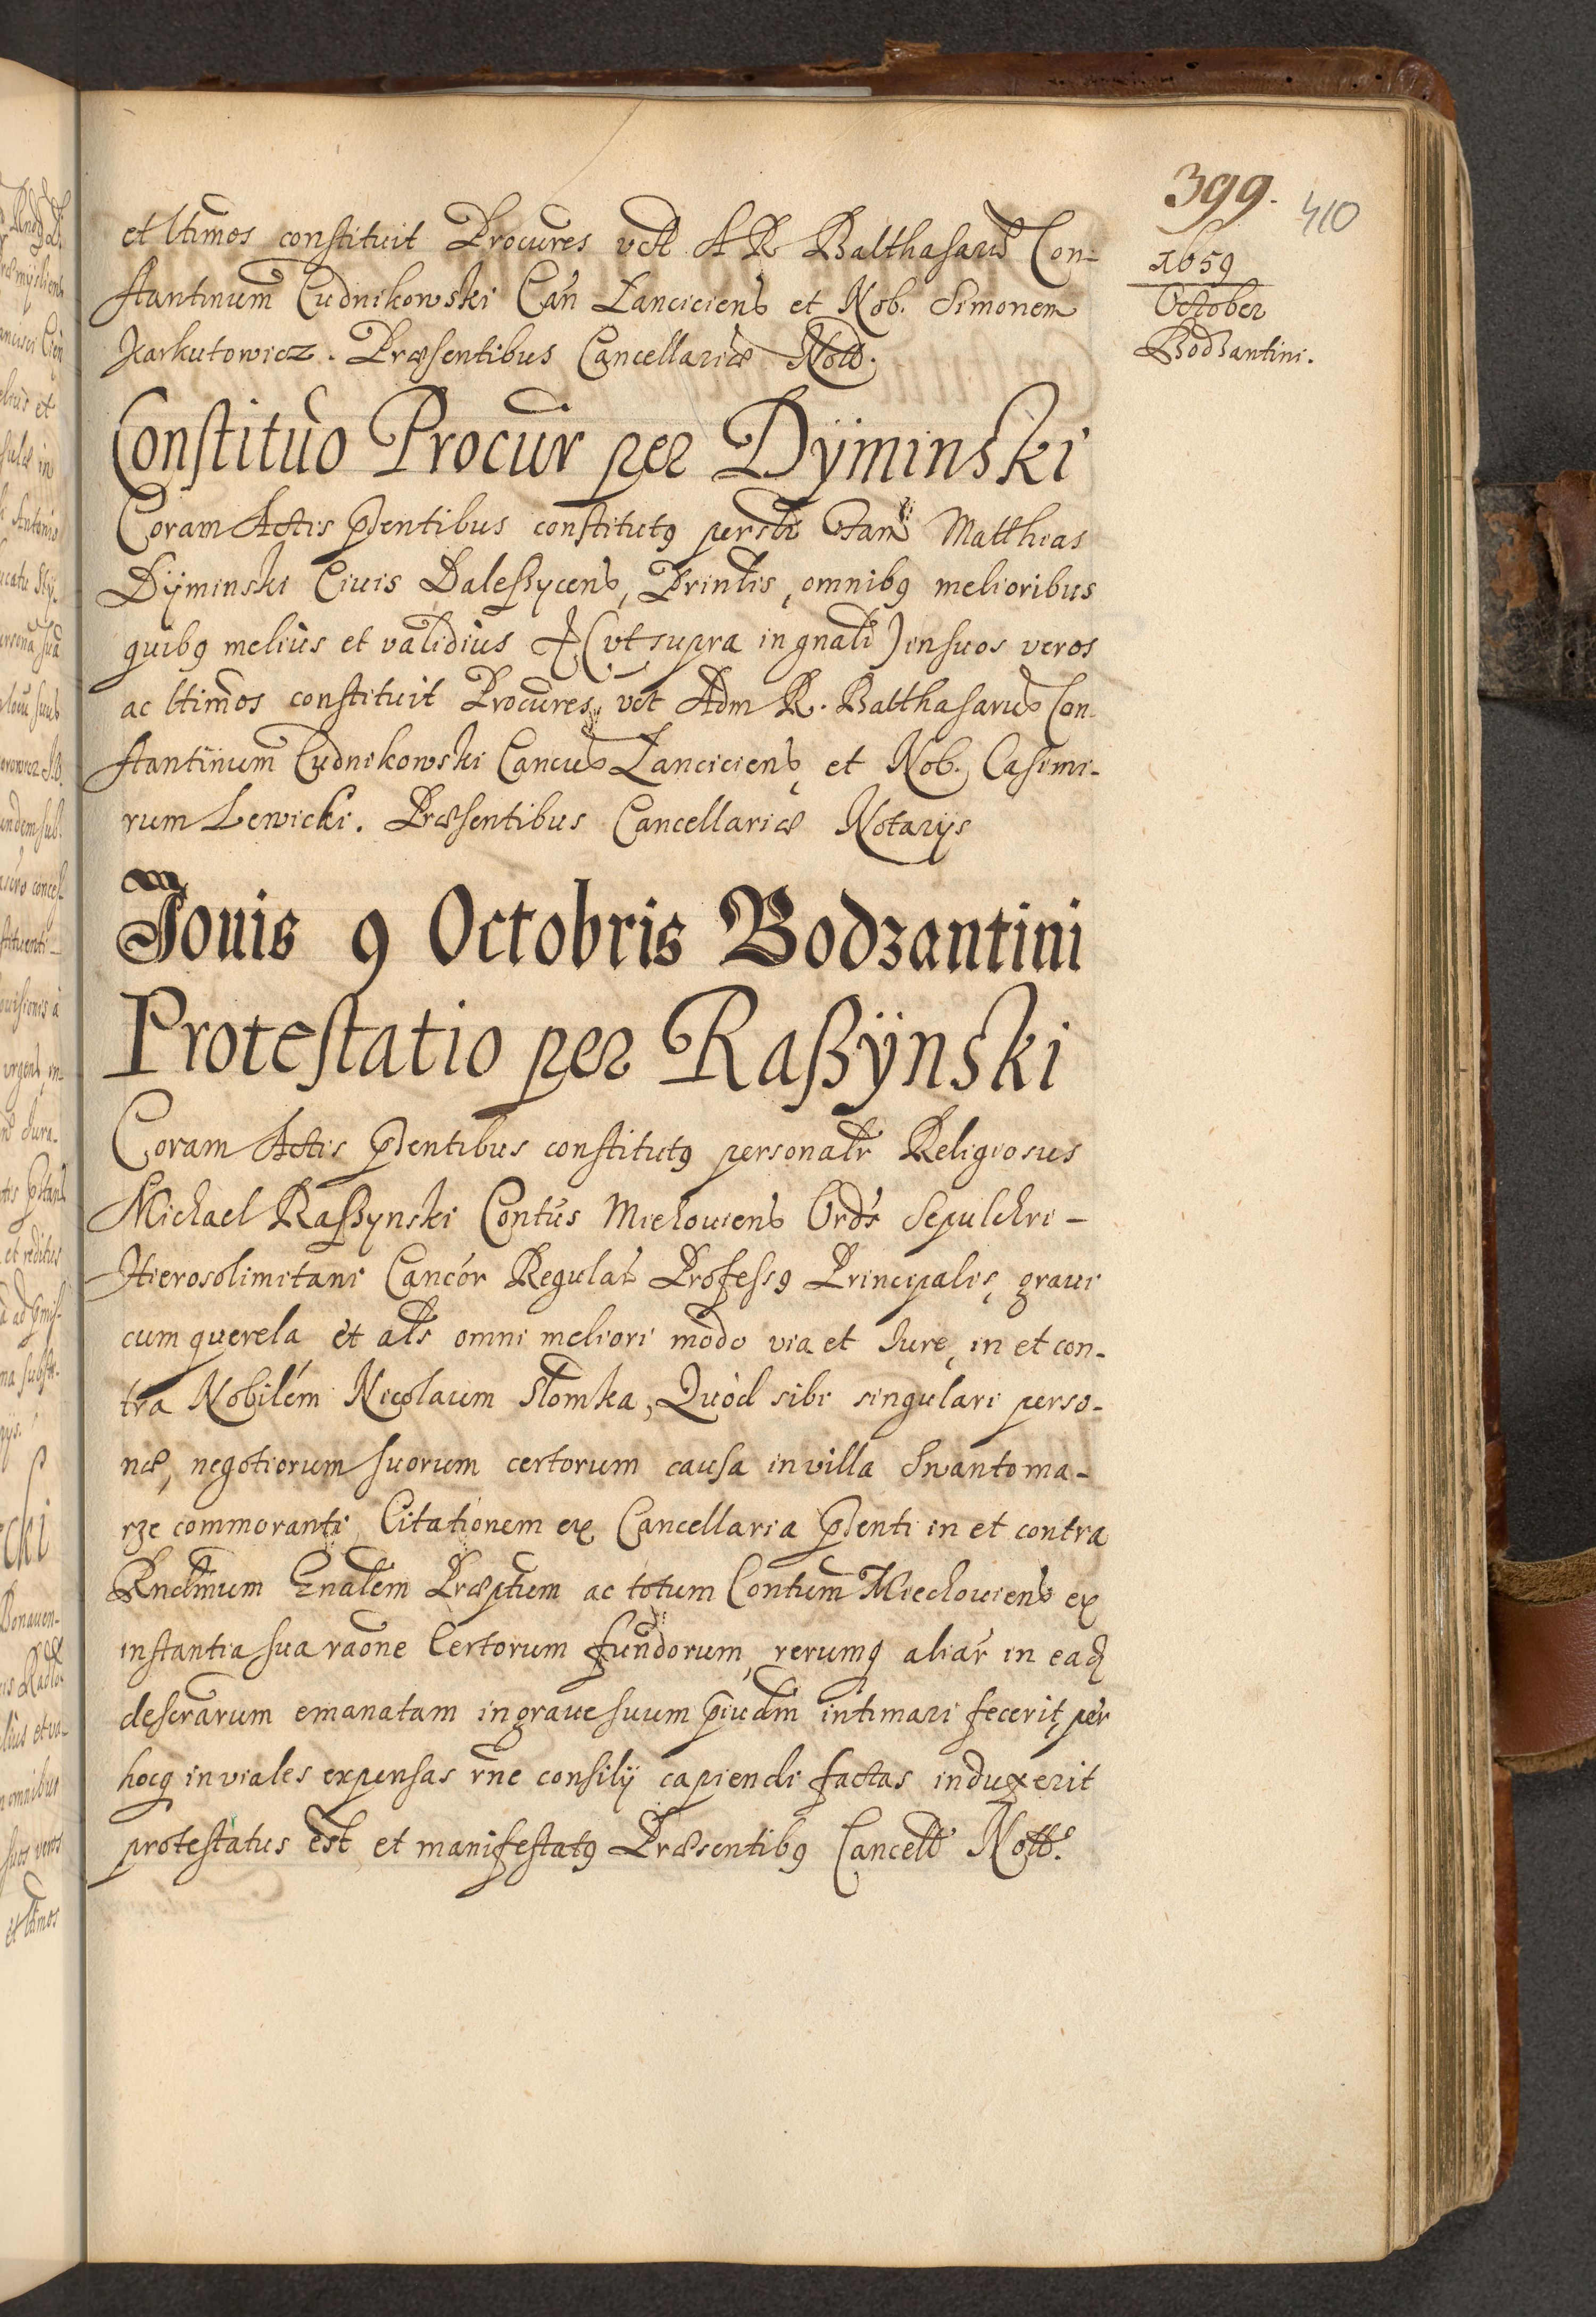 399.
410
1659
October
Bodzantini.
et ltimos constituit Procures vclt A R Balthasarũ Con-
stantinum Cudnikowski Can Lancicienš et Nob. Simonem
Jarkutowicz. Præsentibus Cancellariæ Nottš.
Constituo Procur per Dÿminski
Coram Actis pñtibus constitutꝯ persolr Matthias
Dÿminski Ciuis Daleßycenš, Prinlis, omnibꝯ melioribus
quibꝯ melius et validius &c (vt supra in gnali) in suos veros
ac ltimos constituit Procures, vclt Adm R. Balthasarum Con-
stantinum Cudnikowski Cancum Lancicienš, et Nob. Casimi-
rum Lewicki. Præsentibus Cancellariæ Notarijs
Jouis 9 Octobris Bodzantini
Protestatio per Raßÿnski
Coram Actis pñtibus constitutꝯ personalr Religiosus
Michael Raßynski Contus Miechouienš Ordis Sepulchri -
Hierosolimitani Cancor Regular Professꝯ Principalis, graui
cum querela et als omni meliori modo via et Jure, in et con-
tra Nobilem Nicolaum Słomka, Quod sibi singulari perso-
næ, negotiorum suorum certorum causa in villa Swantoma-
rze commoranti Citationem ex Cancellaria pñti in et contra
Rndmum Gnalem Præptum ac totum Contum Miechouienš ex
instantia sua raone certorum fundorum, rerumq aliar in eadẽ
descrarum emanatam in graue suum prudm intimari fecerit, per
hocq in viales expensas rne consilij capiendi factas induxerit
protestatus est et manifestatꝯ Præsentibꝯ Cancell Notts.